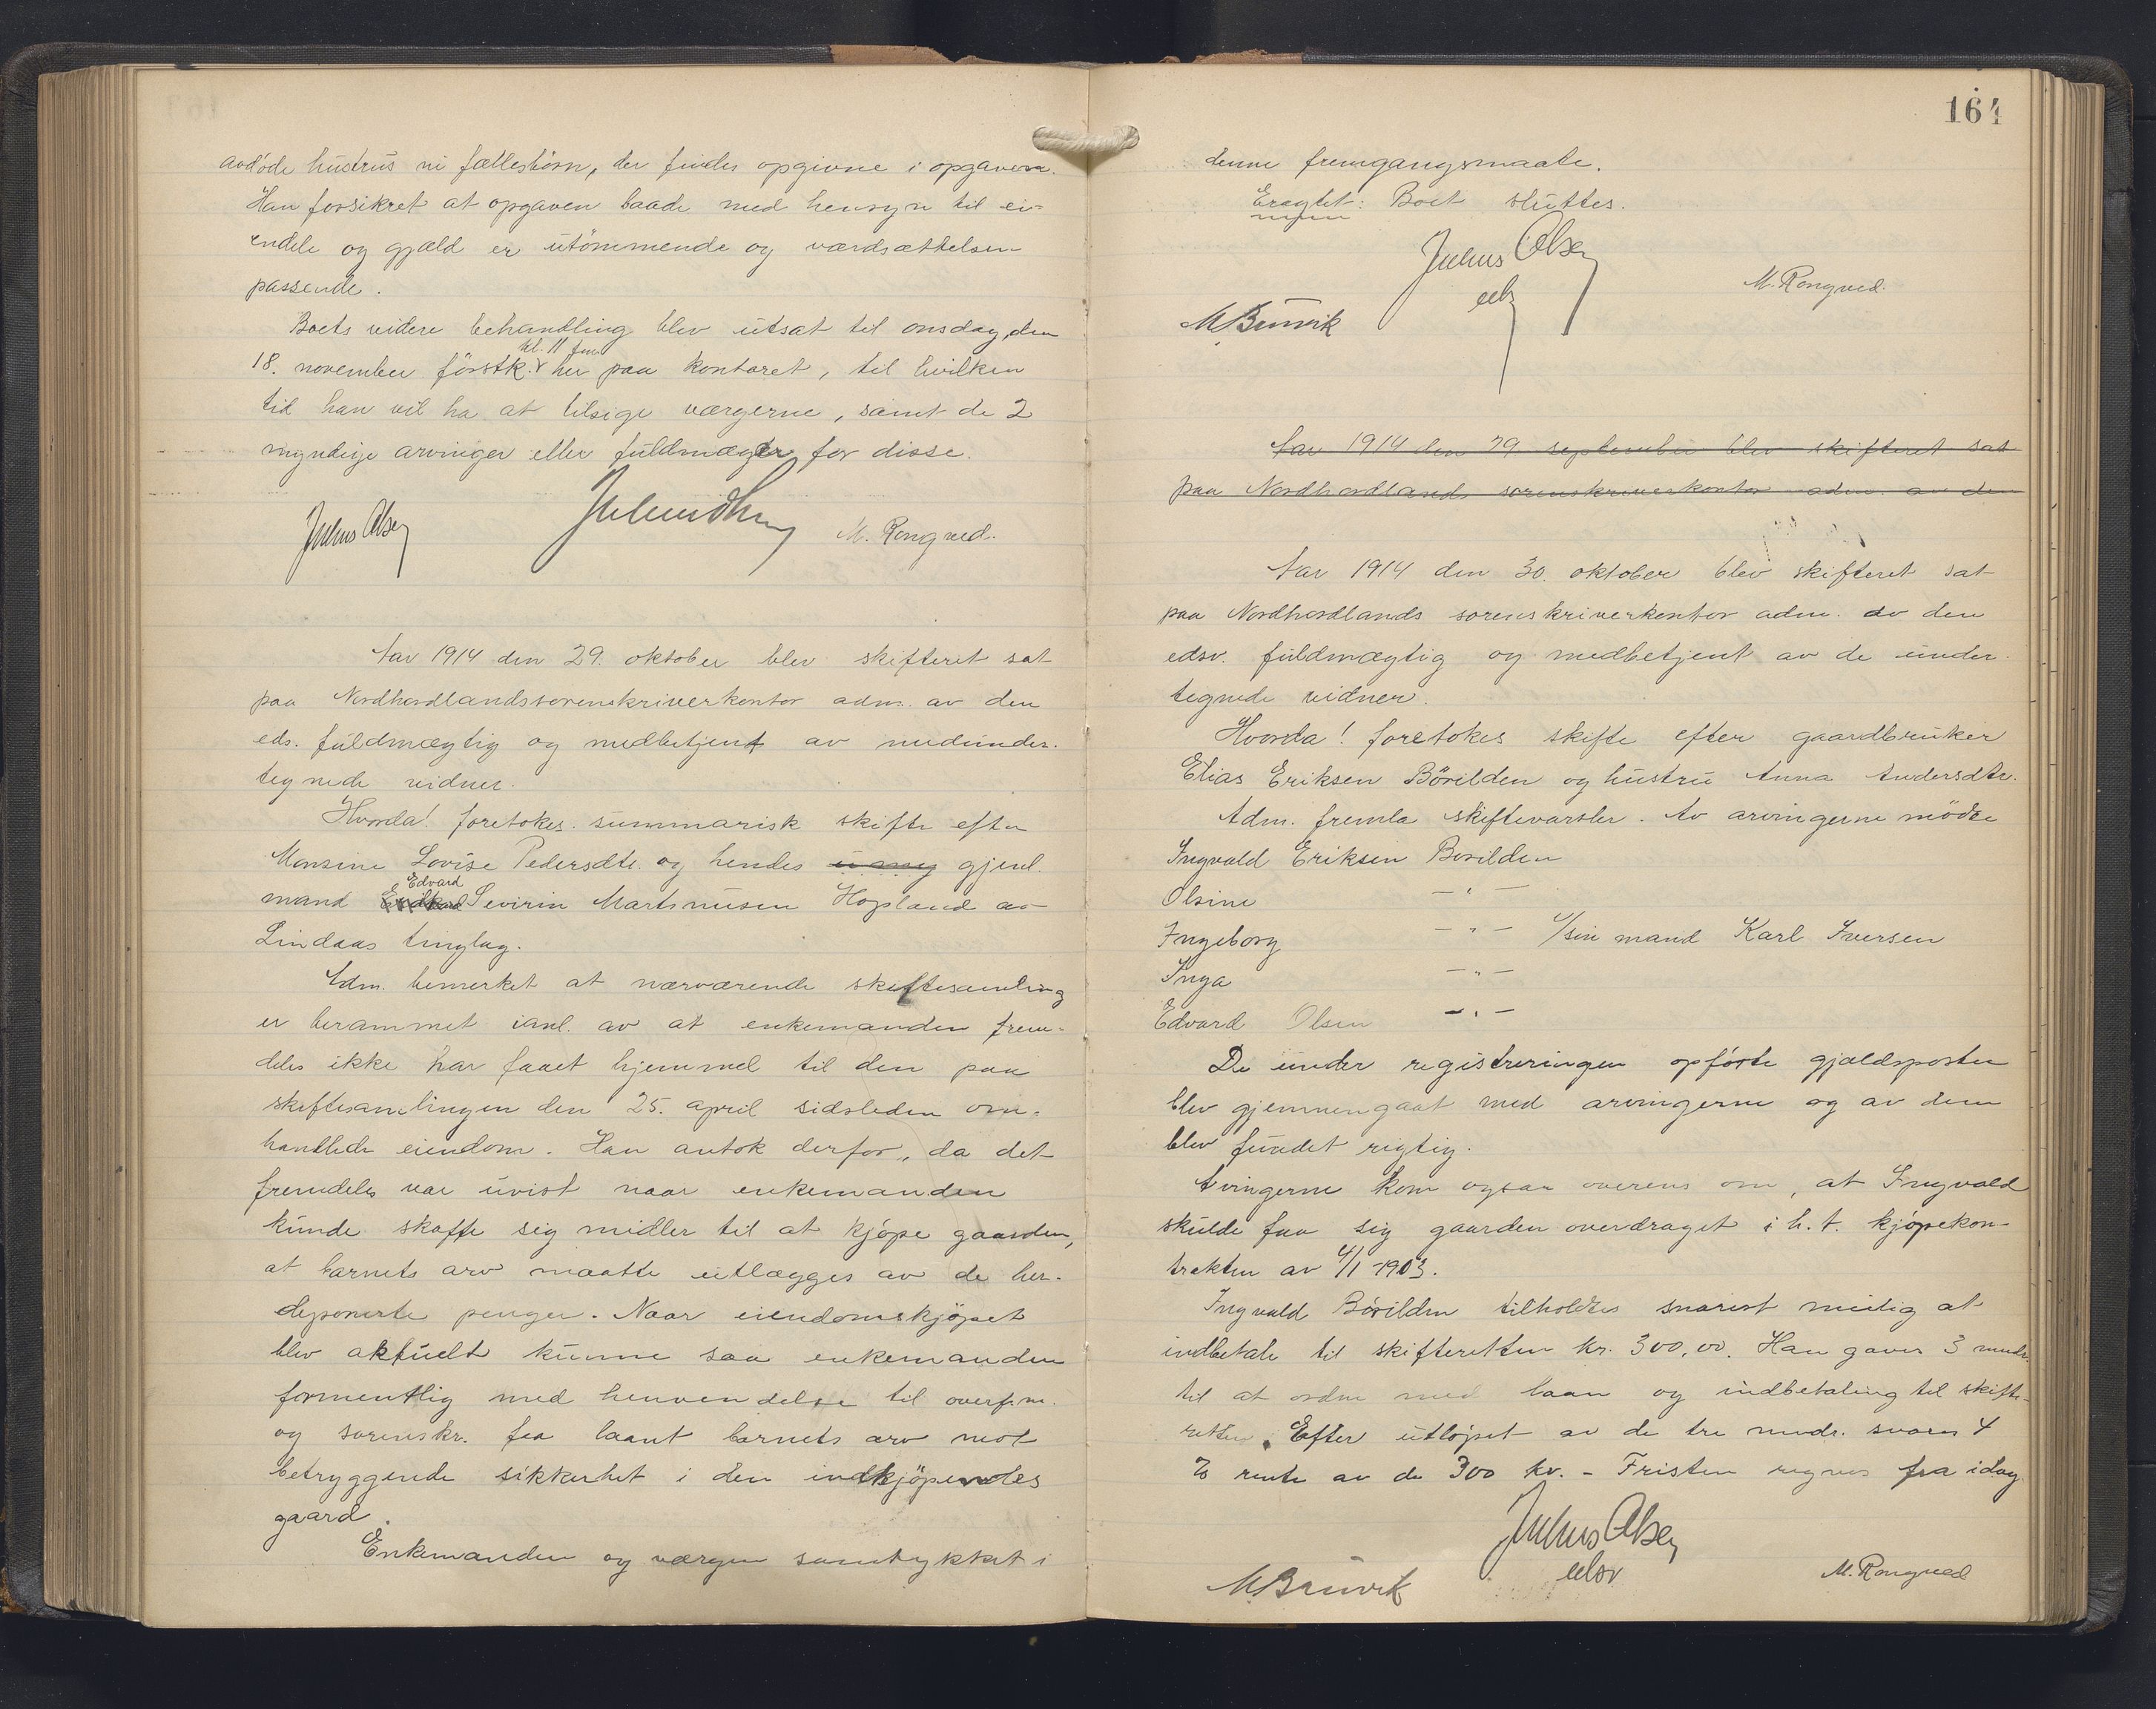 avdöde hustrus ni fællesbörn, der findes opgivne i opgaven.
Han forsikret at opgaven baade med hensyn til ei-
endele og gjæld er utömmende og værdsættelsen
passende.
Boets videre behandling blev utsat til onsdag, den
18. november förstk. kl. 11 fm. her paa kontoret, til hvilken
tid han vil ha at tilsige værgerne, samt de 2
myndige arvinger eller fuldmægtig for disse.
Julius Olsen
M. Rongved.
Aar 1914 den 29. oktober blev skifteret sat
paa Nordhordlandssorenskriverkontor adm. av den
eds. fuldmægtig og medbetjent av nedunder-
tegnede vidner.
Hvorda! foretokes summarisk skifte efter
Monsine Lovise Pedersdtr. og hendes gjenl.
mand Edvard Severin Martinusen Hopland av
Lindaas tinglag.
Adm. bemerket at nærværende skiftesamling
er berammet ianl. av at enkemanden frem-
deles ikke har faaet hjemmel til den paa
skiftesamlingen den 25. april sidsleden om-
handlede eiendom. Han antok derfor, da det
fremdeles var uvist naar enkemanden
kunde skaffe sig midler til at kjöpe gaarden,
at barnets arv maatte utlægges av de her-
deponerte penger. Naar eiendomskjöpet
blev aktuelt kunne saa enkemanden
formentlig med henvendelse til overfm.
og sorenskr. faa laant barnets arv mot
betryggende sikkerhet i den indkjöpendes
gaard.
Enkemanden og værgen samtykket i
164
denne fremgangsmaate.
Eragtet: Boet sluttes.
Julius Olsen
edsv
M. Rongved.
M Brüvik
Aar 1914 den 29 september blev skifteret sat
paa Nordhordlands sorenskriverkontor adm. av den
Aar 1914 den 30. oktober blev skifteret sat
paa Nordhordlands sorenskriverkontor adm. av den
edsv. fuldmægtig og medbetjent av de under-
tegnede vidner.
Hvorda! foretokes skifte efter gaardbruker
Elias Eriksen Börilden og hustru Anna Andersdtr.
Adm. fremla skiftevarsler. Av arvingerne mödte
Ingvald Eriksen Borilden
Olsine — " —
Ingeborg — " — v/sin mand Karl Iversen
Inga — " —
Edvard Olsen — " —
De under registreringen opförte gjældsposter
blev gjennengaat med arvingerne og av dem
blev fundet rigtig.
Arvingerne kom ogsaa overens om, at Ingvald
skulde faa sig gaarden overdraget i h. t. kjöpekon-
trakten av 4/1 1903.
Ingvald Börilden tilholdtes snarest mulig at
indbetale til skifteretten kr. 300,00. Han gaves 3 mndr.
til at ordne med laan og indbetaling til skifte-
retten. Efter utlöpet av de tre mndr. svares 4
% rente av de 300 kr. - Fristen regnes fra idag.
Julius Olsen
edsv
M. Rongved
M Brüvik